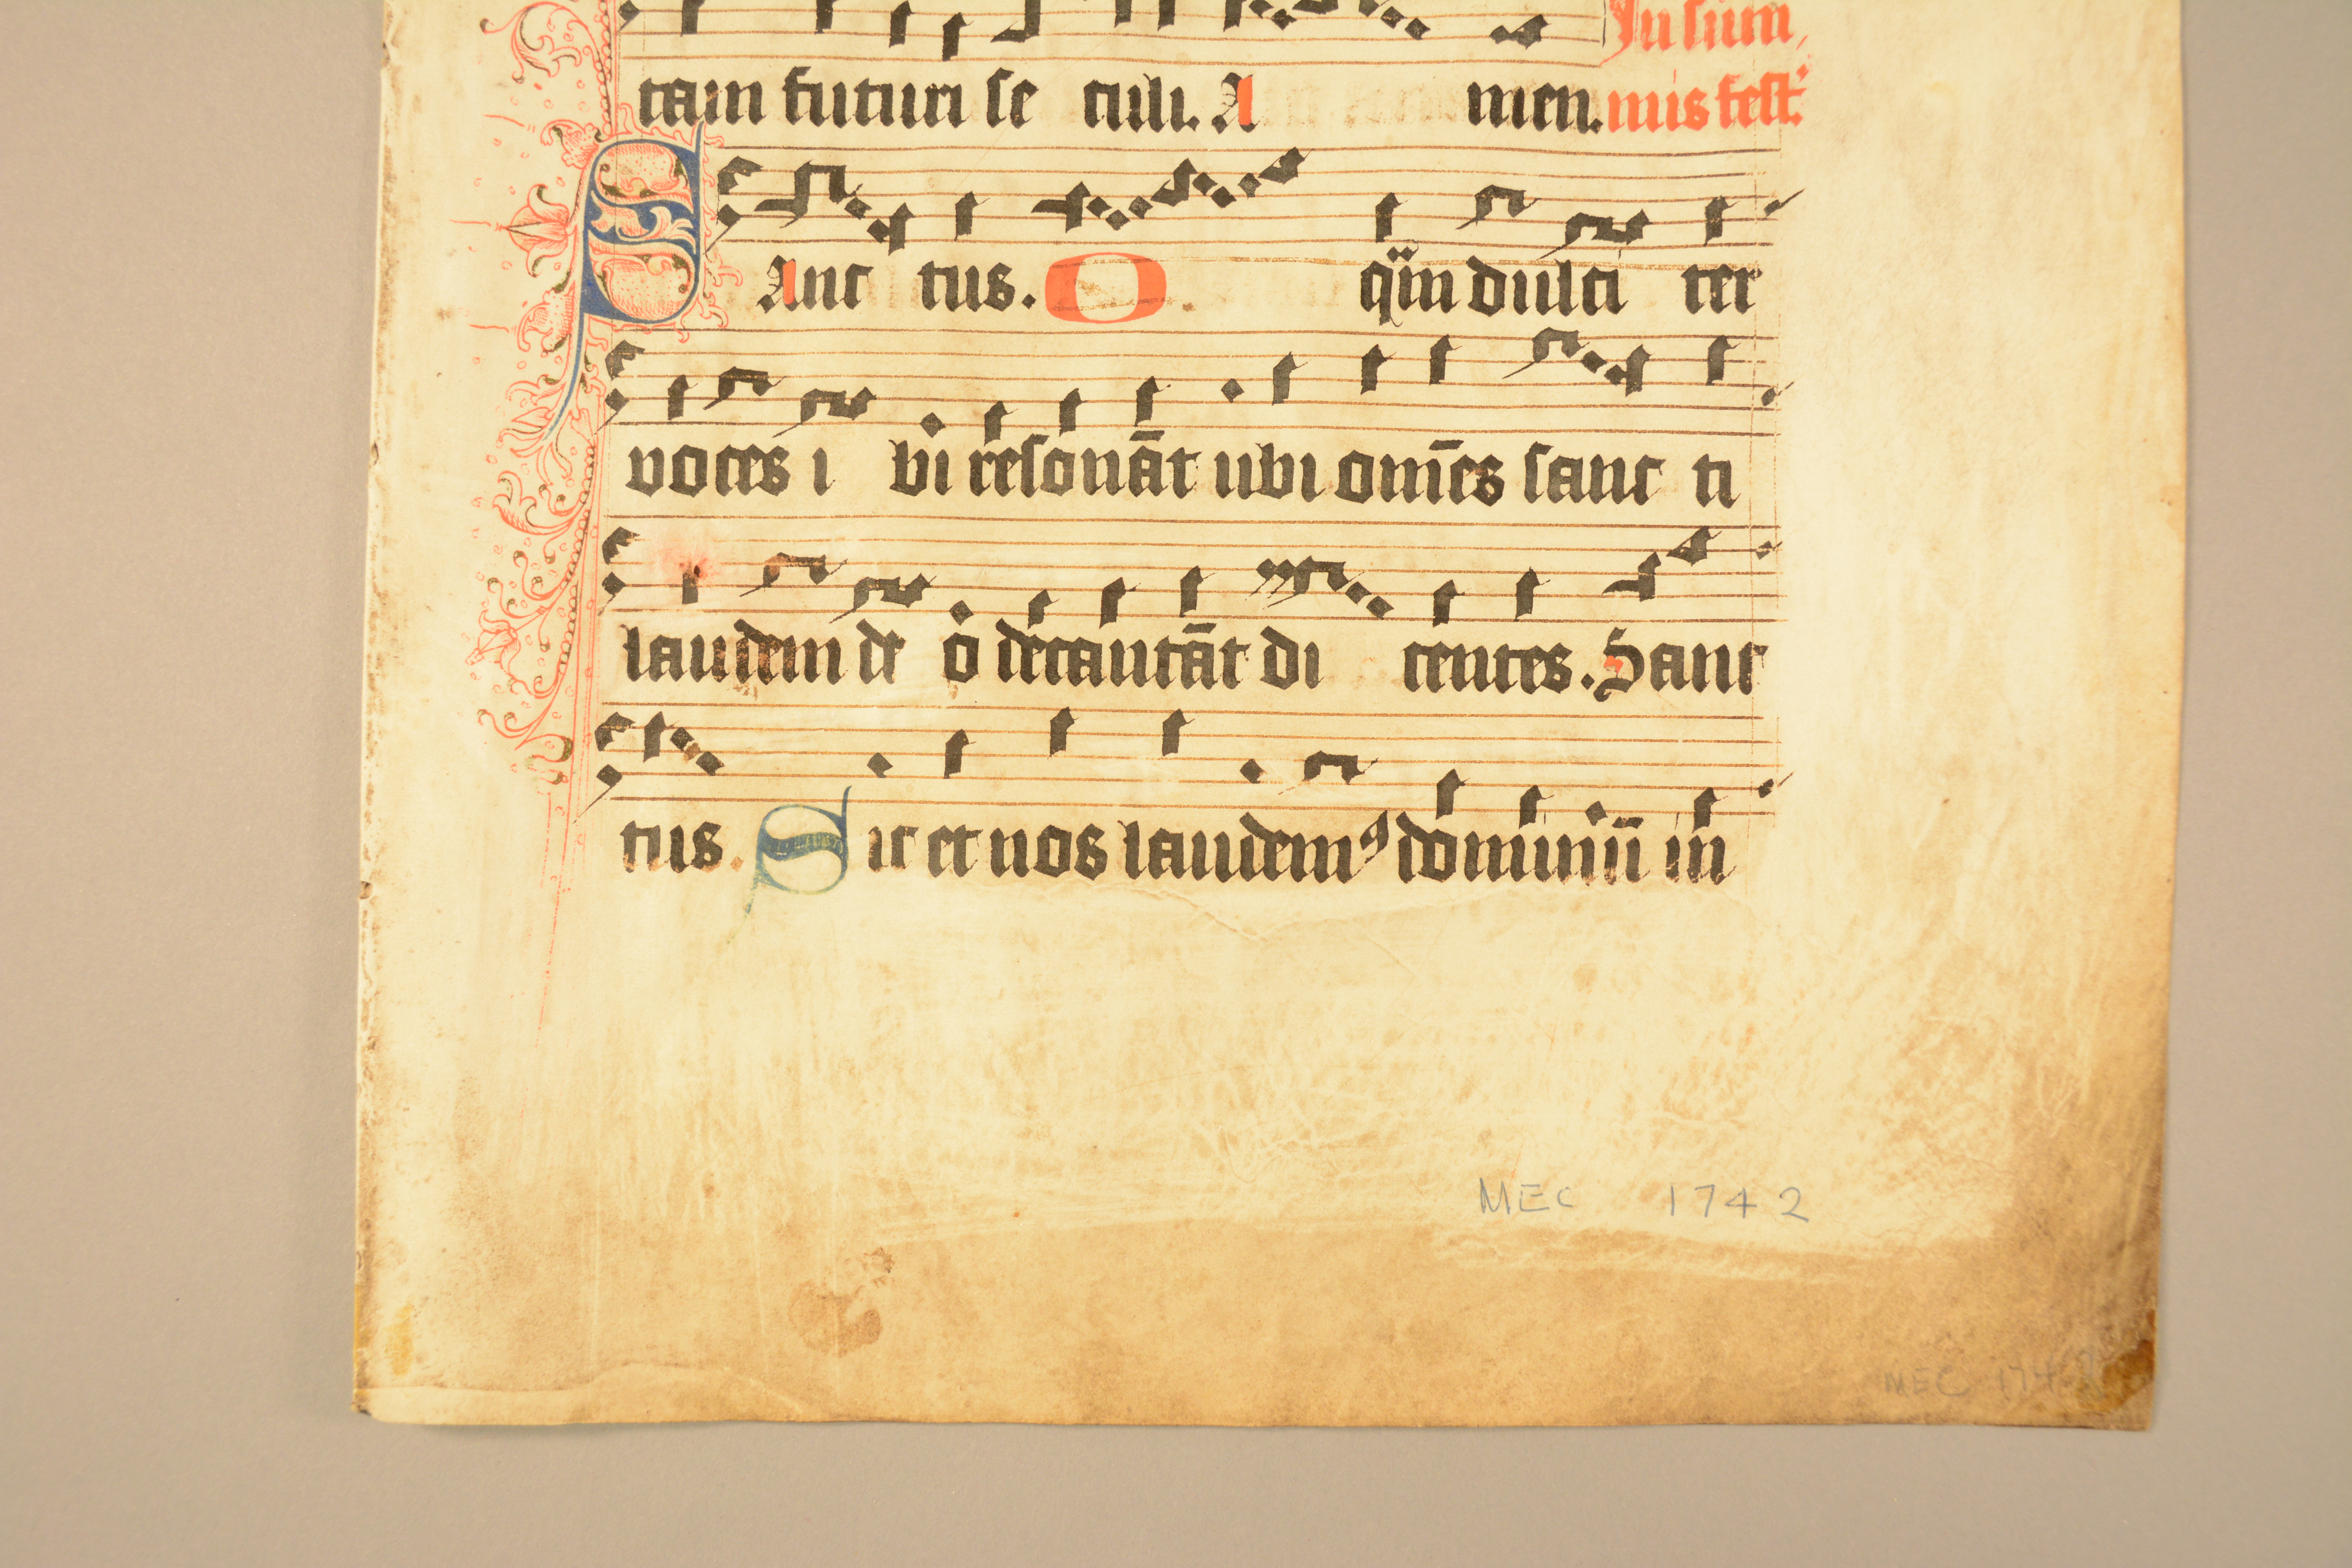 In sum
tam futuri se culi. A men. mis fest.
SAnc tus. O qͥm dulci ter
voces i bi resonāt ubi om̄es sanc ti
laudem de o decantāt di centes. Sanc
tus. Sic et nos laudemꝰ dominū in
MEC 1742
MEC 1742